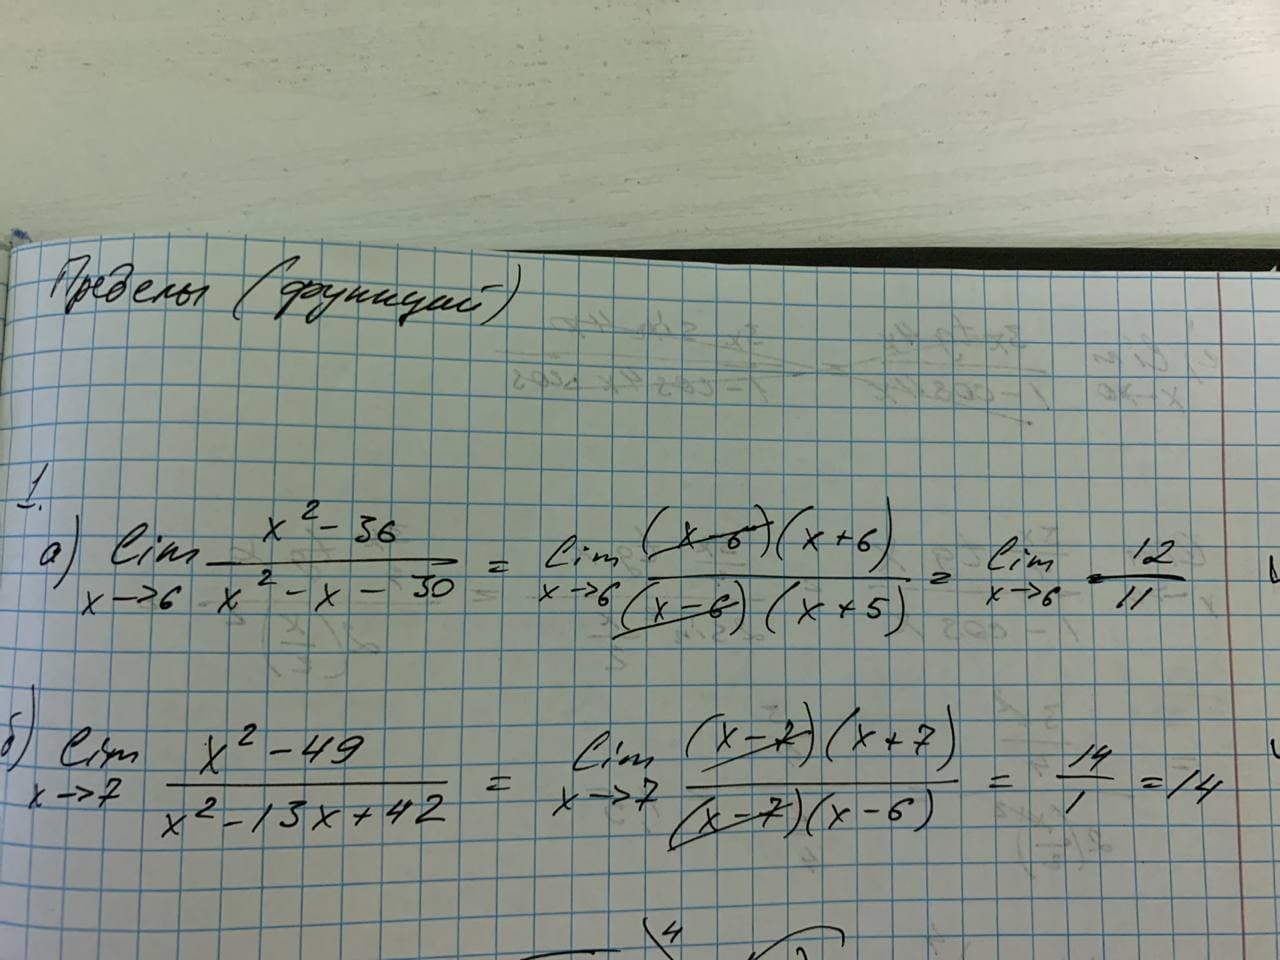 Пределы (функций)
1.
а) lim x→6 (x² - 36)/(x² - x - 30) = lim x→6 ((x-6)(x+6))/((x-6)(x+5)) = lim x→6 12/11
б) lim x→7 (x² - 49)/(x² - 13x + 42) = lim x→7 ((x-7)(x+7))/((x-7)(x-6)) = 14/1 = 14
4